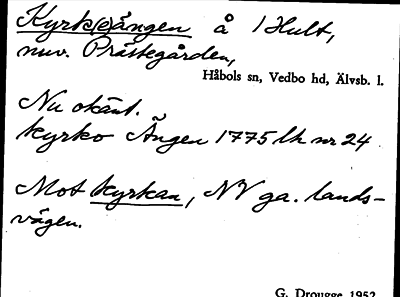 Kyrk(o)ängen å 1 Hult,
nuv. Prästegården,
Håbols sn, Vedbo hd, Älvsb. l.
Nu okänt.
Kyrko Ängen 1775 lh nr 24
Mot kyrkan, NV ga. lands-
vägen.
G. Drougge 1952